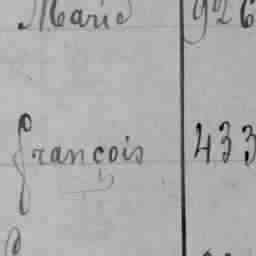 Marie 926
françois 433